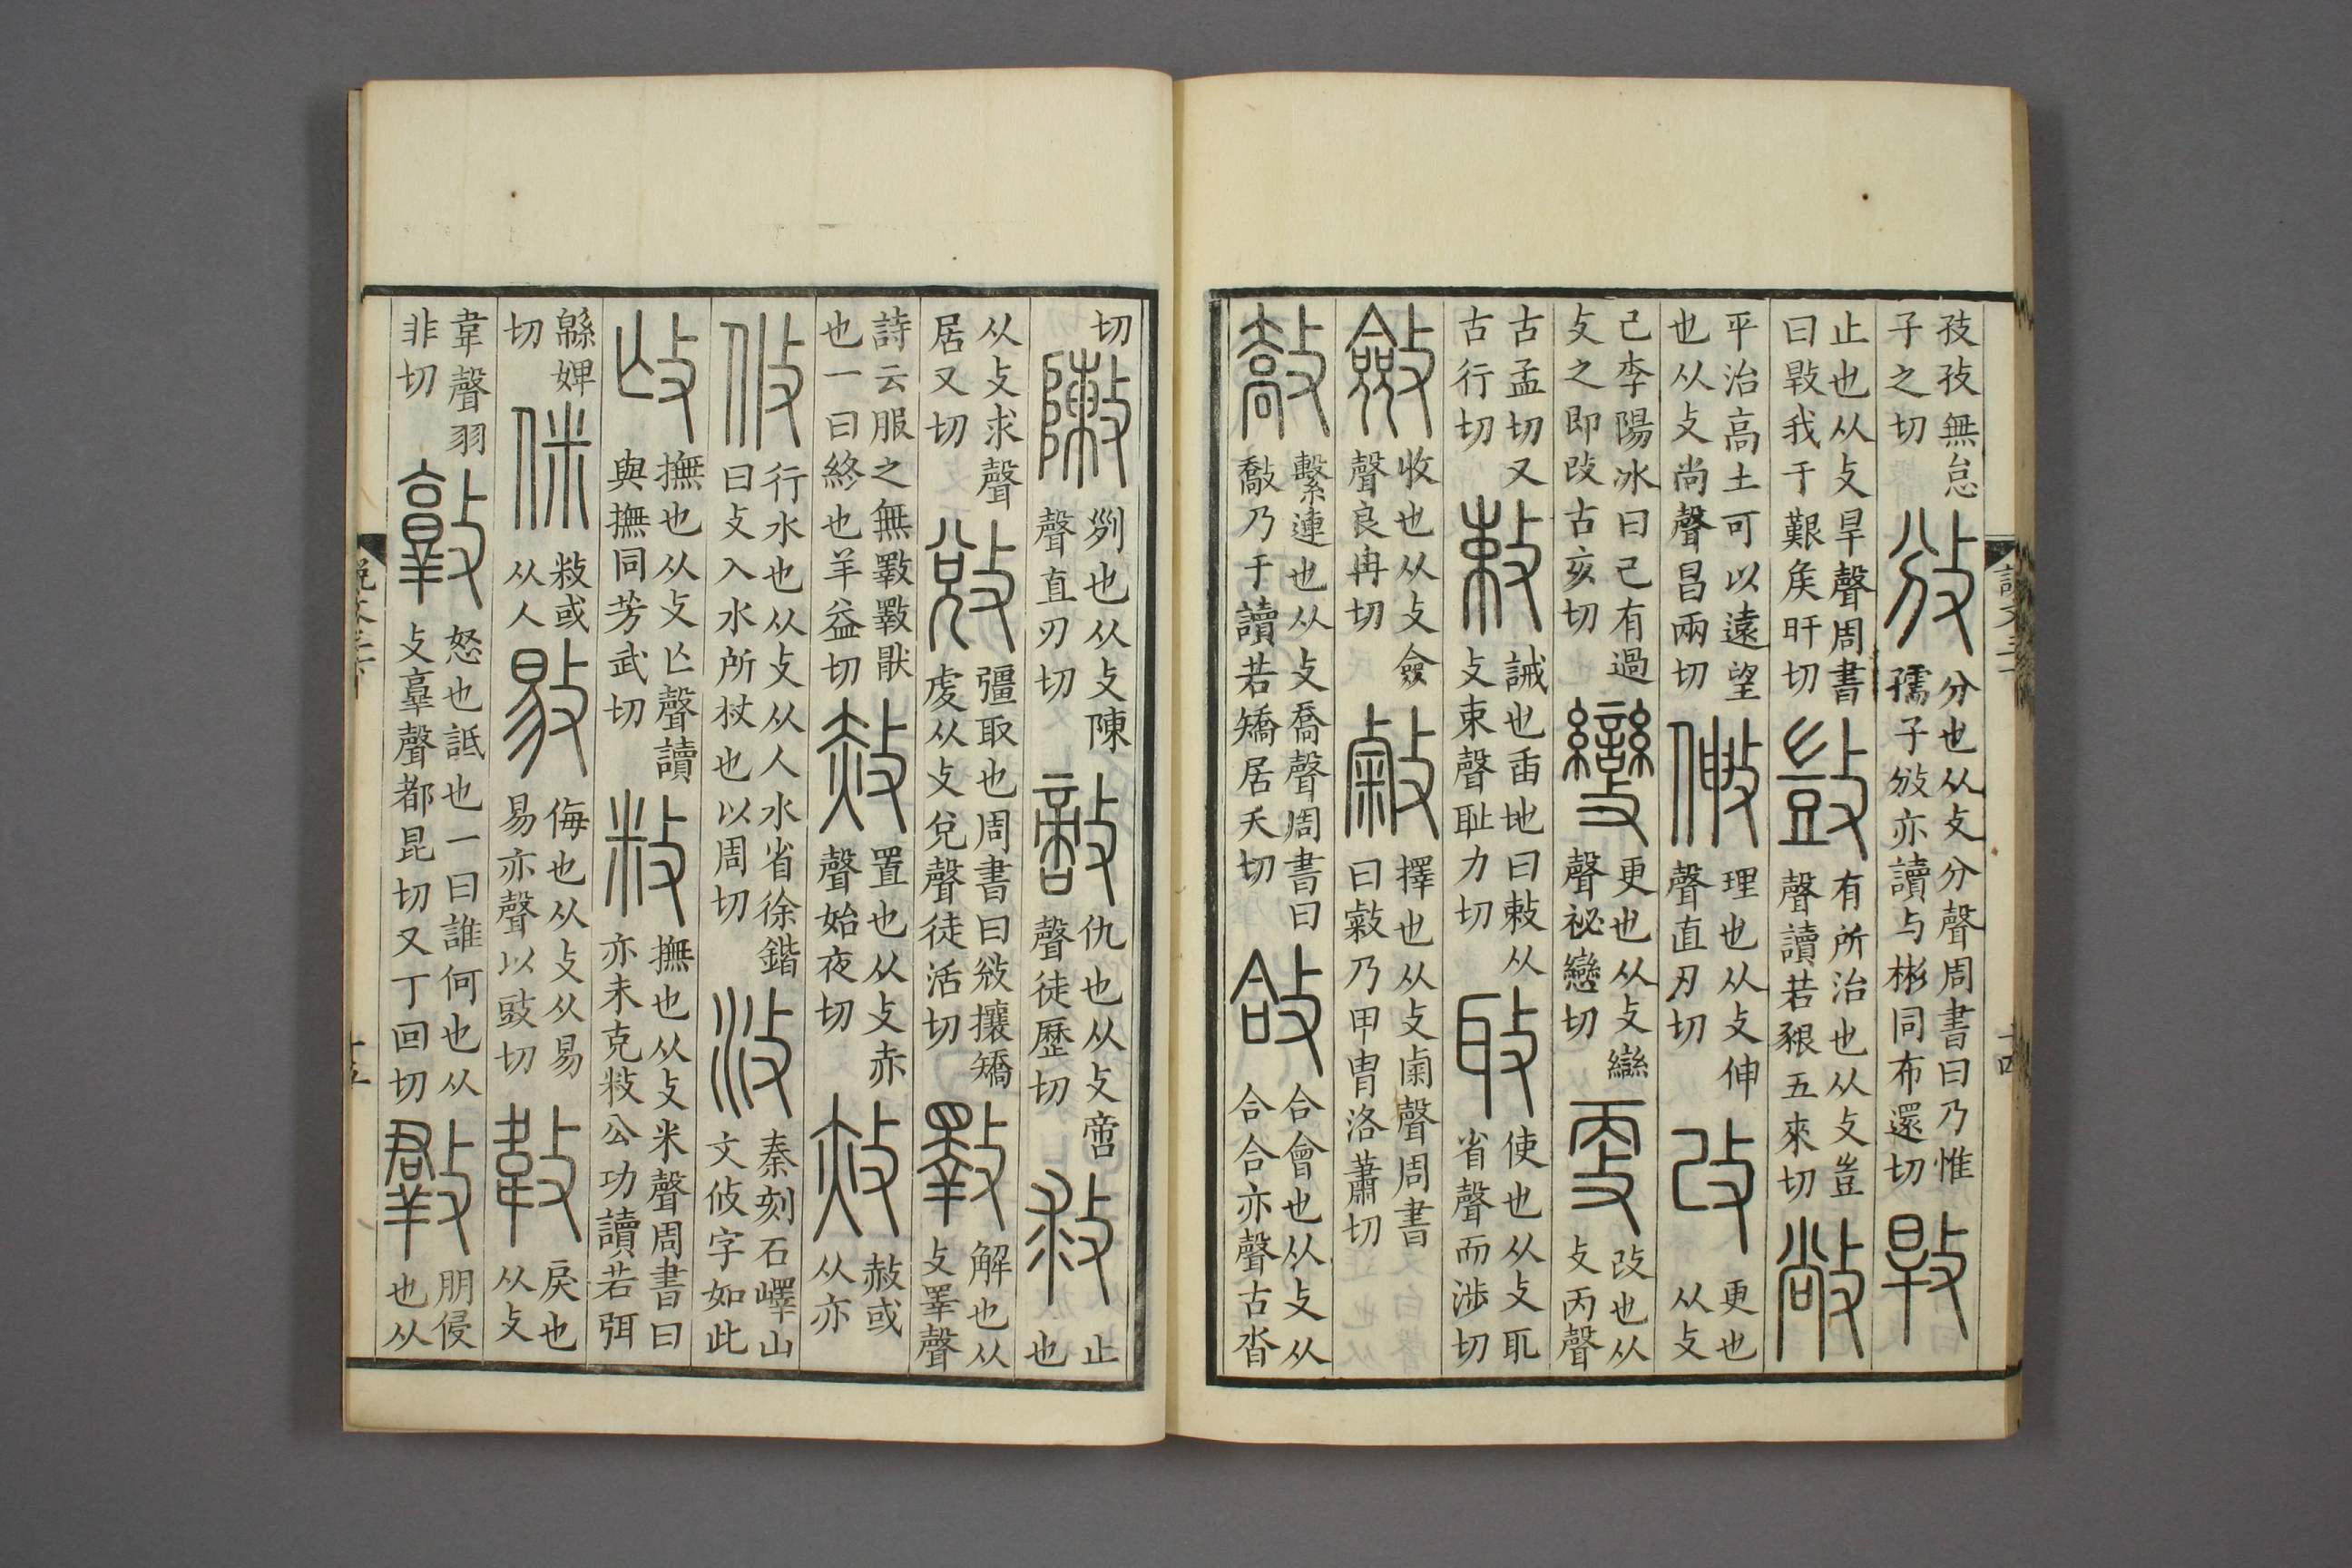 孜孜無怠子之切攽分也从攴分聲周書曰乃惟孺子攽亦讀与彬同布還切𢾍
止也从攴旱聲周書曰𢾍我于艱矦旰切敳有所治也从攴豈聲讀若豤五來切敞
平治高土可以遠望也从攴尚聲昌兩切𢾊理也从攴伸聲直刃切改更也从攴
己李陽冰曰己有過攴之即改古亥切變更也从攴䜌聲祕戀切㪅改也从攴丙聲
古孟切又古行切敕誡也臿地曰敕从攴束聲恥力切𢼄使也从攴耴省聲而涉切
斂收也从攴僉聲良冉切敹擇也从攴𠧢聲周書曰敹乃甲冑洛蕭切
敿繫連也从攴喬聲周書曰敿乃干讀若矯居夭切㪉合會也从攴从合合亦聲古沓
切敶㓟也从攴陳聲直刃切敵仇也从攴啻聲徒歷切救止也
从攴求聲居又切敓彊取也周書曰敓攘矯虔从攴兌聲徒活切斁解也从攴睪聲
詩云服之無斁斁猒也一曰終也羊益切赦置也从攴赤聲始夜切𢼜赦或从亦
攸行水也从攴从人水省徐鍇曰攴入水所杖也以周切汥秦刻石嶧山文攸字如此
㪃撫也从攴亡聲讀與撫同芳武切敉撫也从攴米聲周書曰亦未克敉公功讀若弭
緜婢切侎敉或从人敡侮也从攴从易易亦聲以豉切敼戾也从攴
韋聲羽非切敦怒也詆也一曰誰何也从攴𦎫聲都昆切又丁回切𣀄朋侵也从